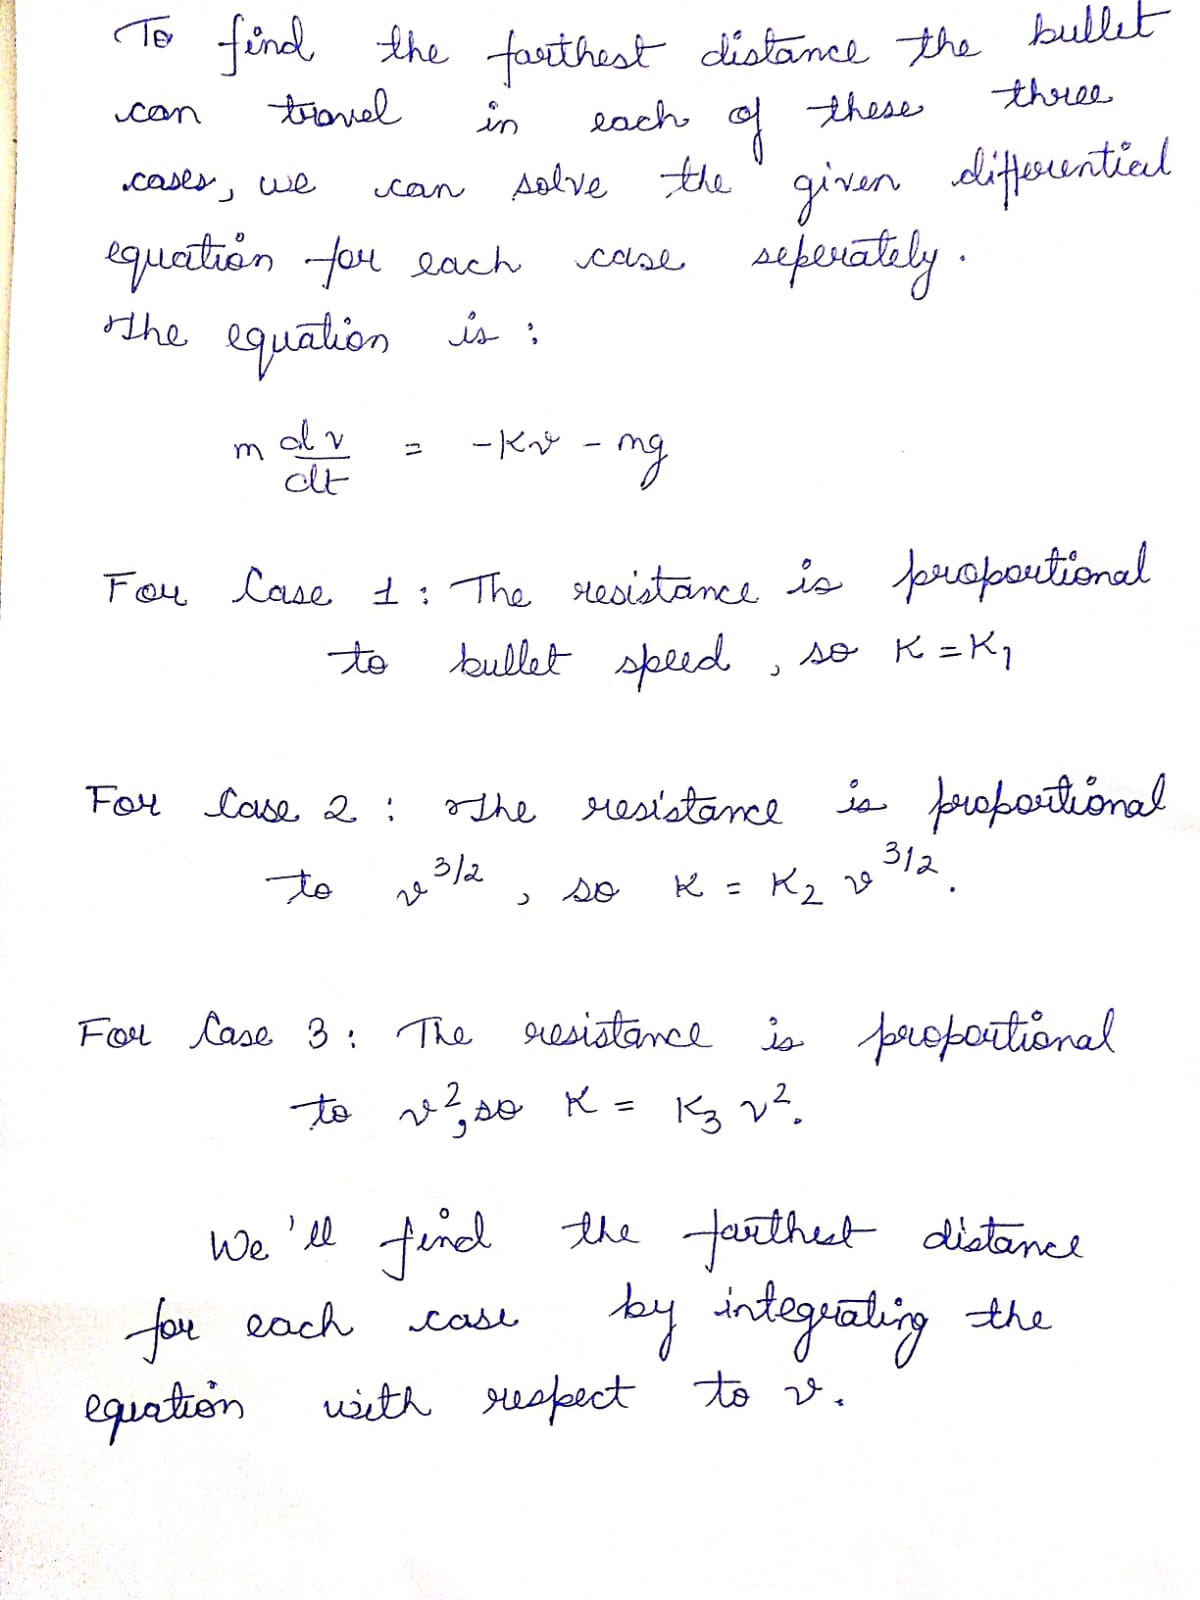 To find the farthest distance the bullet
can travel in each of these three
cases, we can solve the given differential
equation for each case seperately.
The equation is :
m dv/dt = -Kv - mg
For Case 1 : The resistance is proportional
to bullet speed, so K = K₁
For Case 2 : The resistance is proportional
to v^3/2, so K = K₂ v^3/2.
For Case 3 : The resistance is proportional
to v², so K = K₃ v².
We'll find the farthest distance
for each case by integrating the
equation with respect to v.